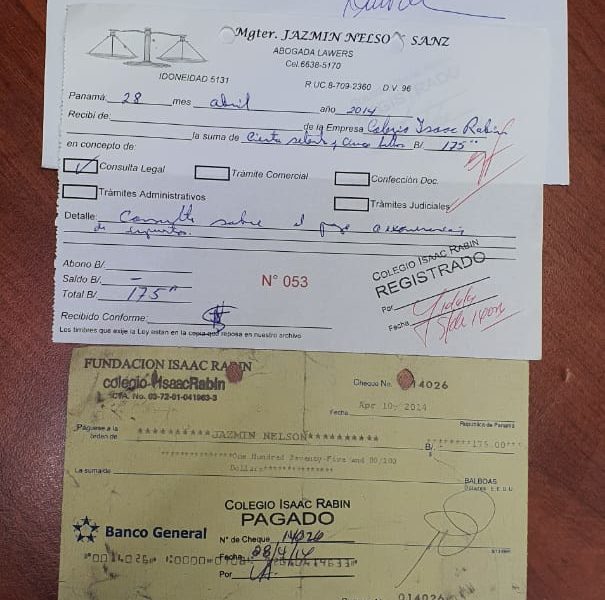 Mgter. JAZMIN NELSON SANZ
ABOGADA LAWERS
Cel.6638-5170
IDONEIDAD 5131
R.UC.8-709-2360 D.V. 96
Panamá: 28 mes abril año 2014
Recibi de: de la Empresa Colegio Isaac Rabin
la suma de B/. 175
en concepto de:
Consulta Legal Tràmite Comercial Confección Doc.
Tràmites Administrativos Tràmites Judiciales
Detalle: Consulta sobre el pago
de
Abono B/.
Saldo B/. —
Total B/. 175
N° 053
COLEGIO ISAAC RABIN
REGISTRADO
Por
Fecha
Recibido Conforme:
Los timbres que exije la Ley estan en la copia que reposa en nuestro archivo
FUNDACION ISAAC RABIN
colegio-IsaacRabin
CTA. No. 03-72-01-041963-3
Cheque No. 14026
Fecha Apr 10, 2014
Republica de Panamá
Páguese a la
orden de **********JAZMIN NELSON********* B/. *******175.00***
One Hundred Seventy-Five and 00/100
Dollars
La suma de
BALBOAS
COLEGIO ISAAC RABIN
PAGADO
Banco General
N° de Cheque 14026
Fecha 28/4/14
Por
014026